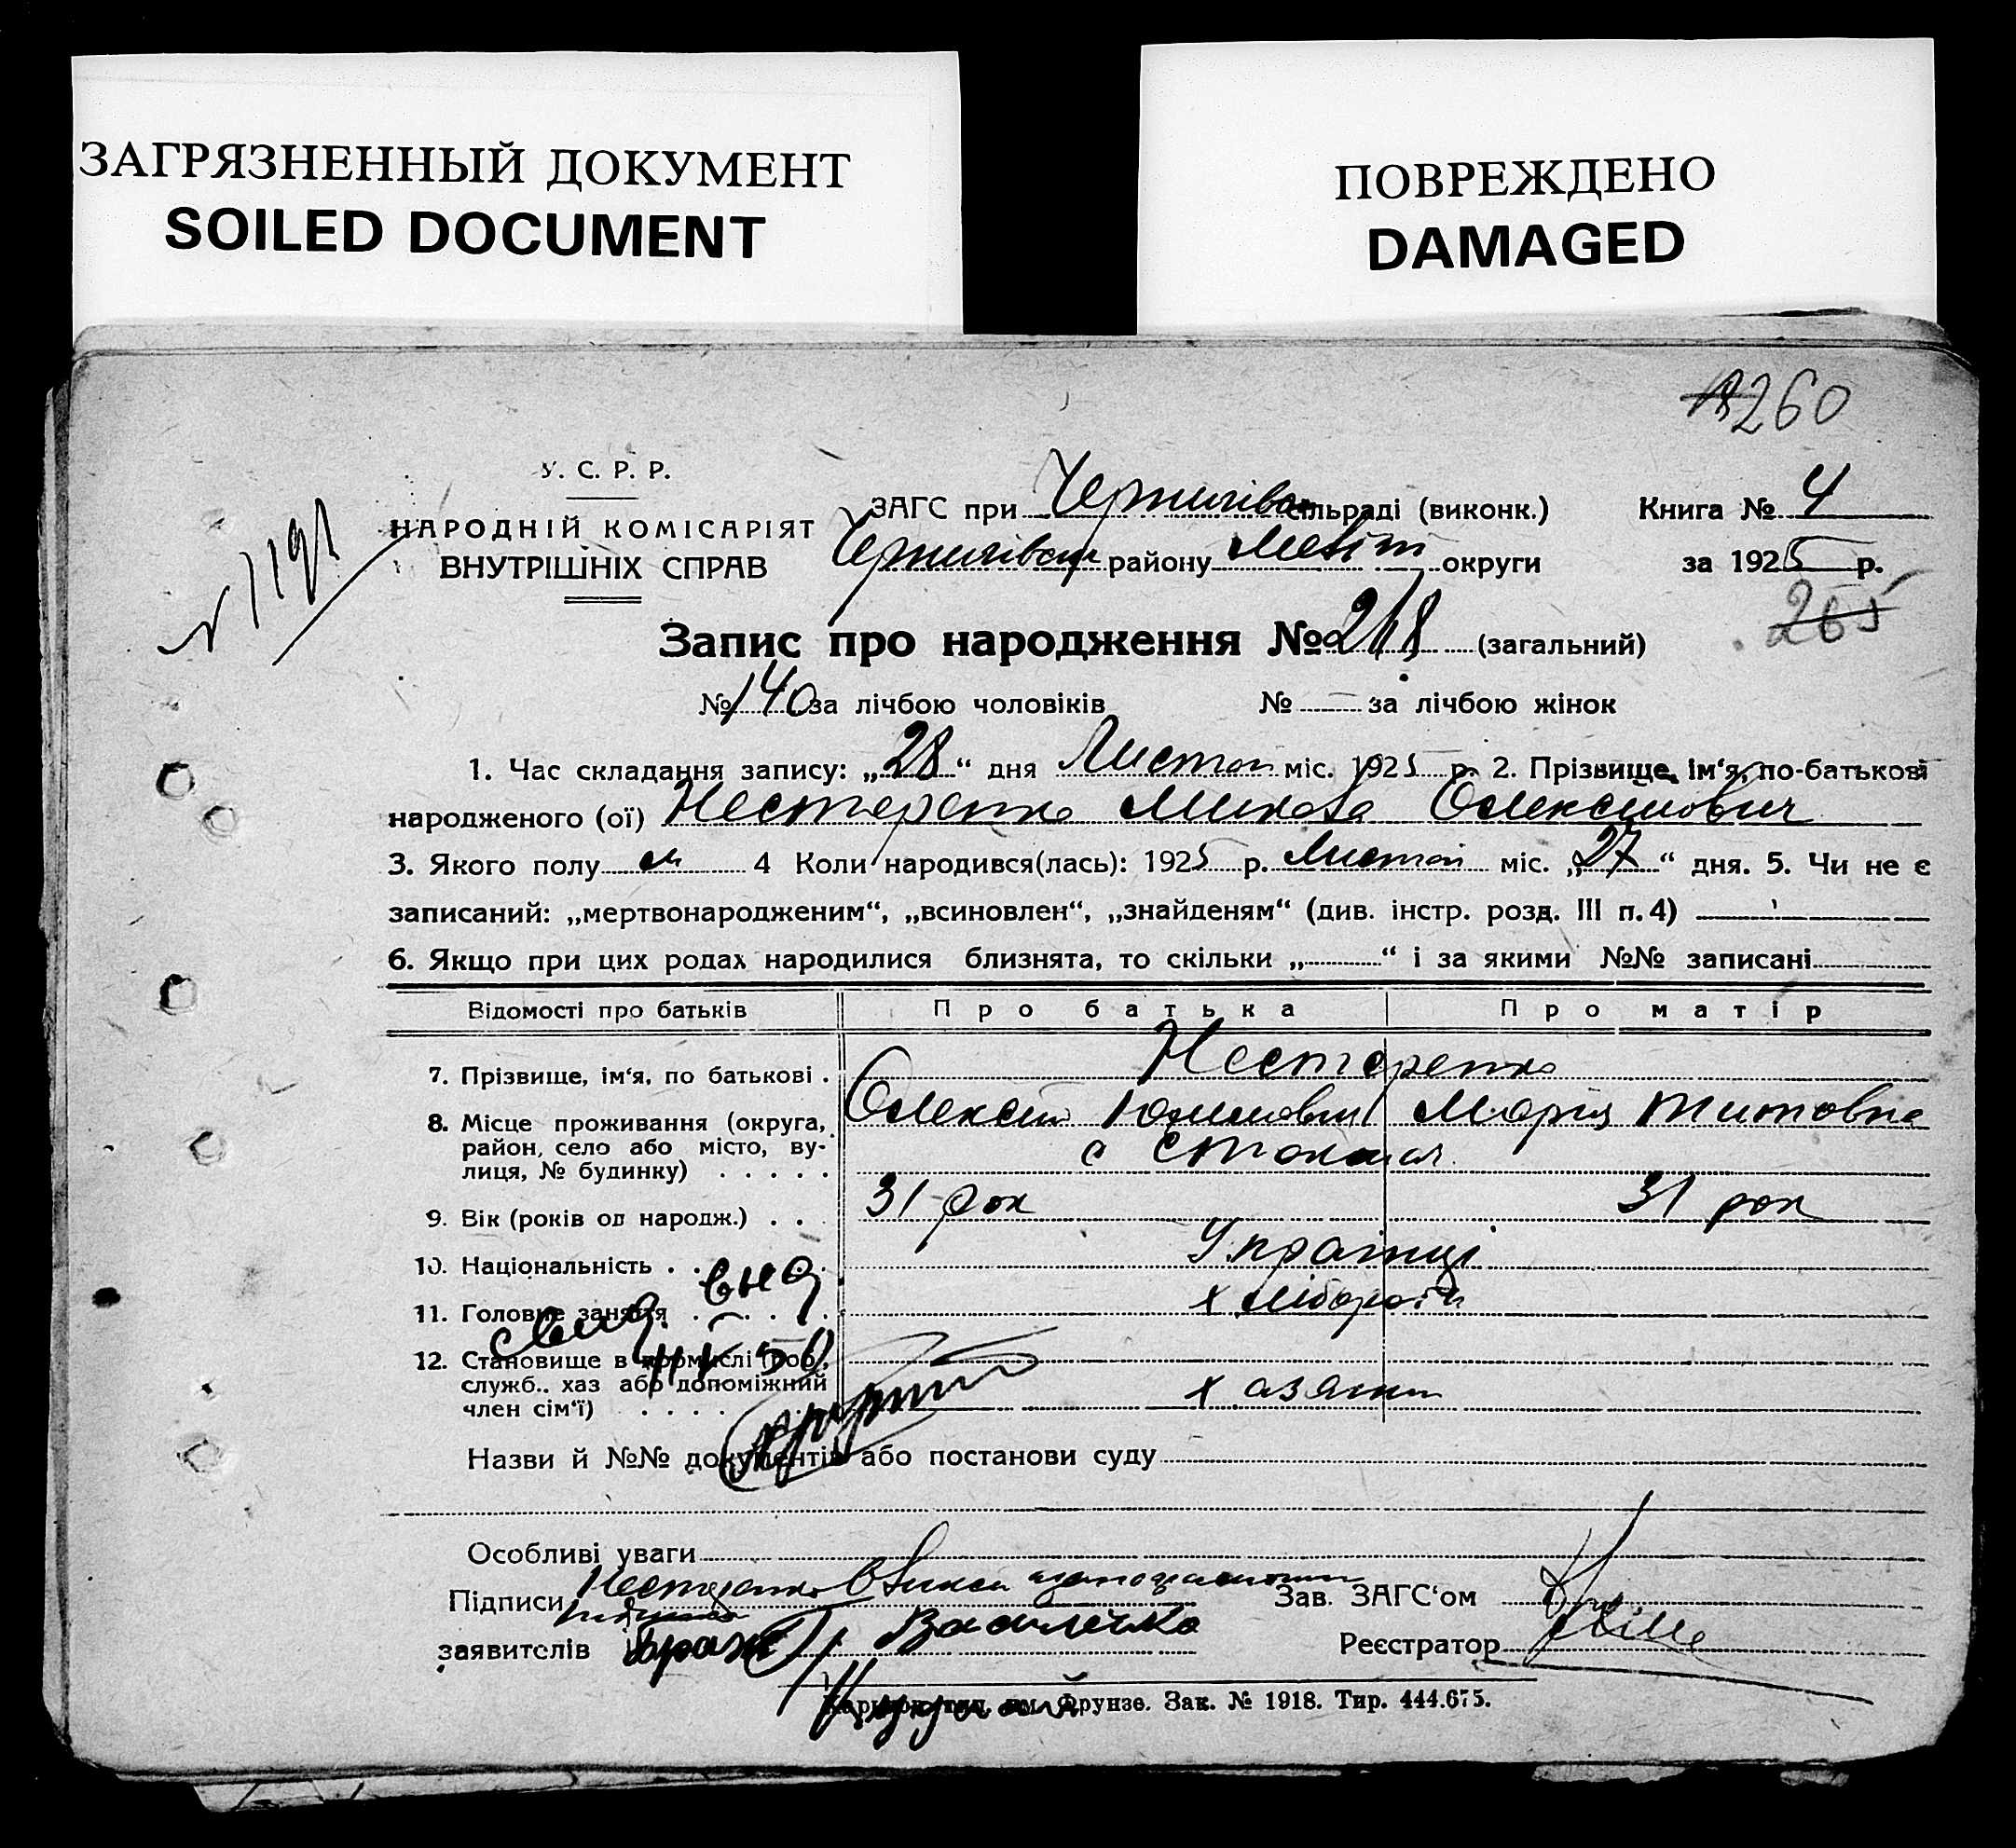 ЗАГРЯЗНЕННЫЙ ДОКУМЕНТ
SOILED DOCUMENT
ПОВРЕЖДЕНО
DAMAGED
260
У. С. Р. Р.
НАРОДНІЙ КОМІСАРІЯТ
ВНУТРІШНІХ СПРАВ
№ 1191
ЗАГС при Чернигівськ сільраді (виконк.) Книга № 4
Чернигівськ району Меліт округи за 1925 р.
265
Запис про народження № 268 (загальний)
№ 140 за лічбою чоловіків № — за лічбою жінок
1. Час складання запису: „28“ дня Листоп міс. 1925 р. 2. Прізвище, ім'я, по-батькові
народженого (ої) Нестеренко Микола Олексійович
3. Якого полу м 4 Коли народився(лась): 1925 р. Листоп міс. „27“ дня. 5. Чи не є
записаний: „мертвонародженим“, „всиновлен“, „знайденям“ (див. інстр. розд. III п. 4)
6. Якщо при цих родах народилися близнята, то скільки „ “ і за якими №№ записані
Відомості про батьків Про батька Про матір
7. Прізвище, ім'я, по батькові . Нестеренко
Олексій Марія Титовна
8. Місце проживання (округа,
район, село або місто, ву-
лиця, № будинку) . . . . . с
9. Вік (років од народж.) . . 31 рок 31 рок
10. Національність . . . . Українці
11. Головне заняття . . . . . хлібороби
12. Становище в промислі (роб.,
служб., хаз або допоміжний
член сім'ї) . . . . хазяин
Назви й №№ документів або постанови суду
Особливі уваги
Підписи Нестеренко
заявителів Василенко
Зав. ЗАГС'ом
Реєстратор
Харьков, тип. им. Фрунзе. Зак. № 1918. Тир. 444.675.